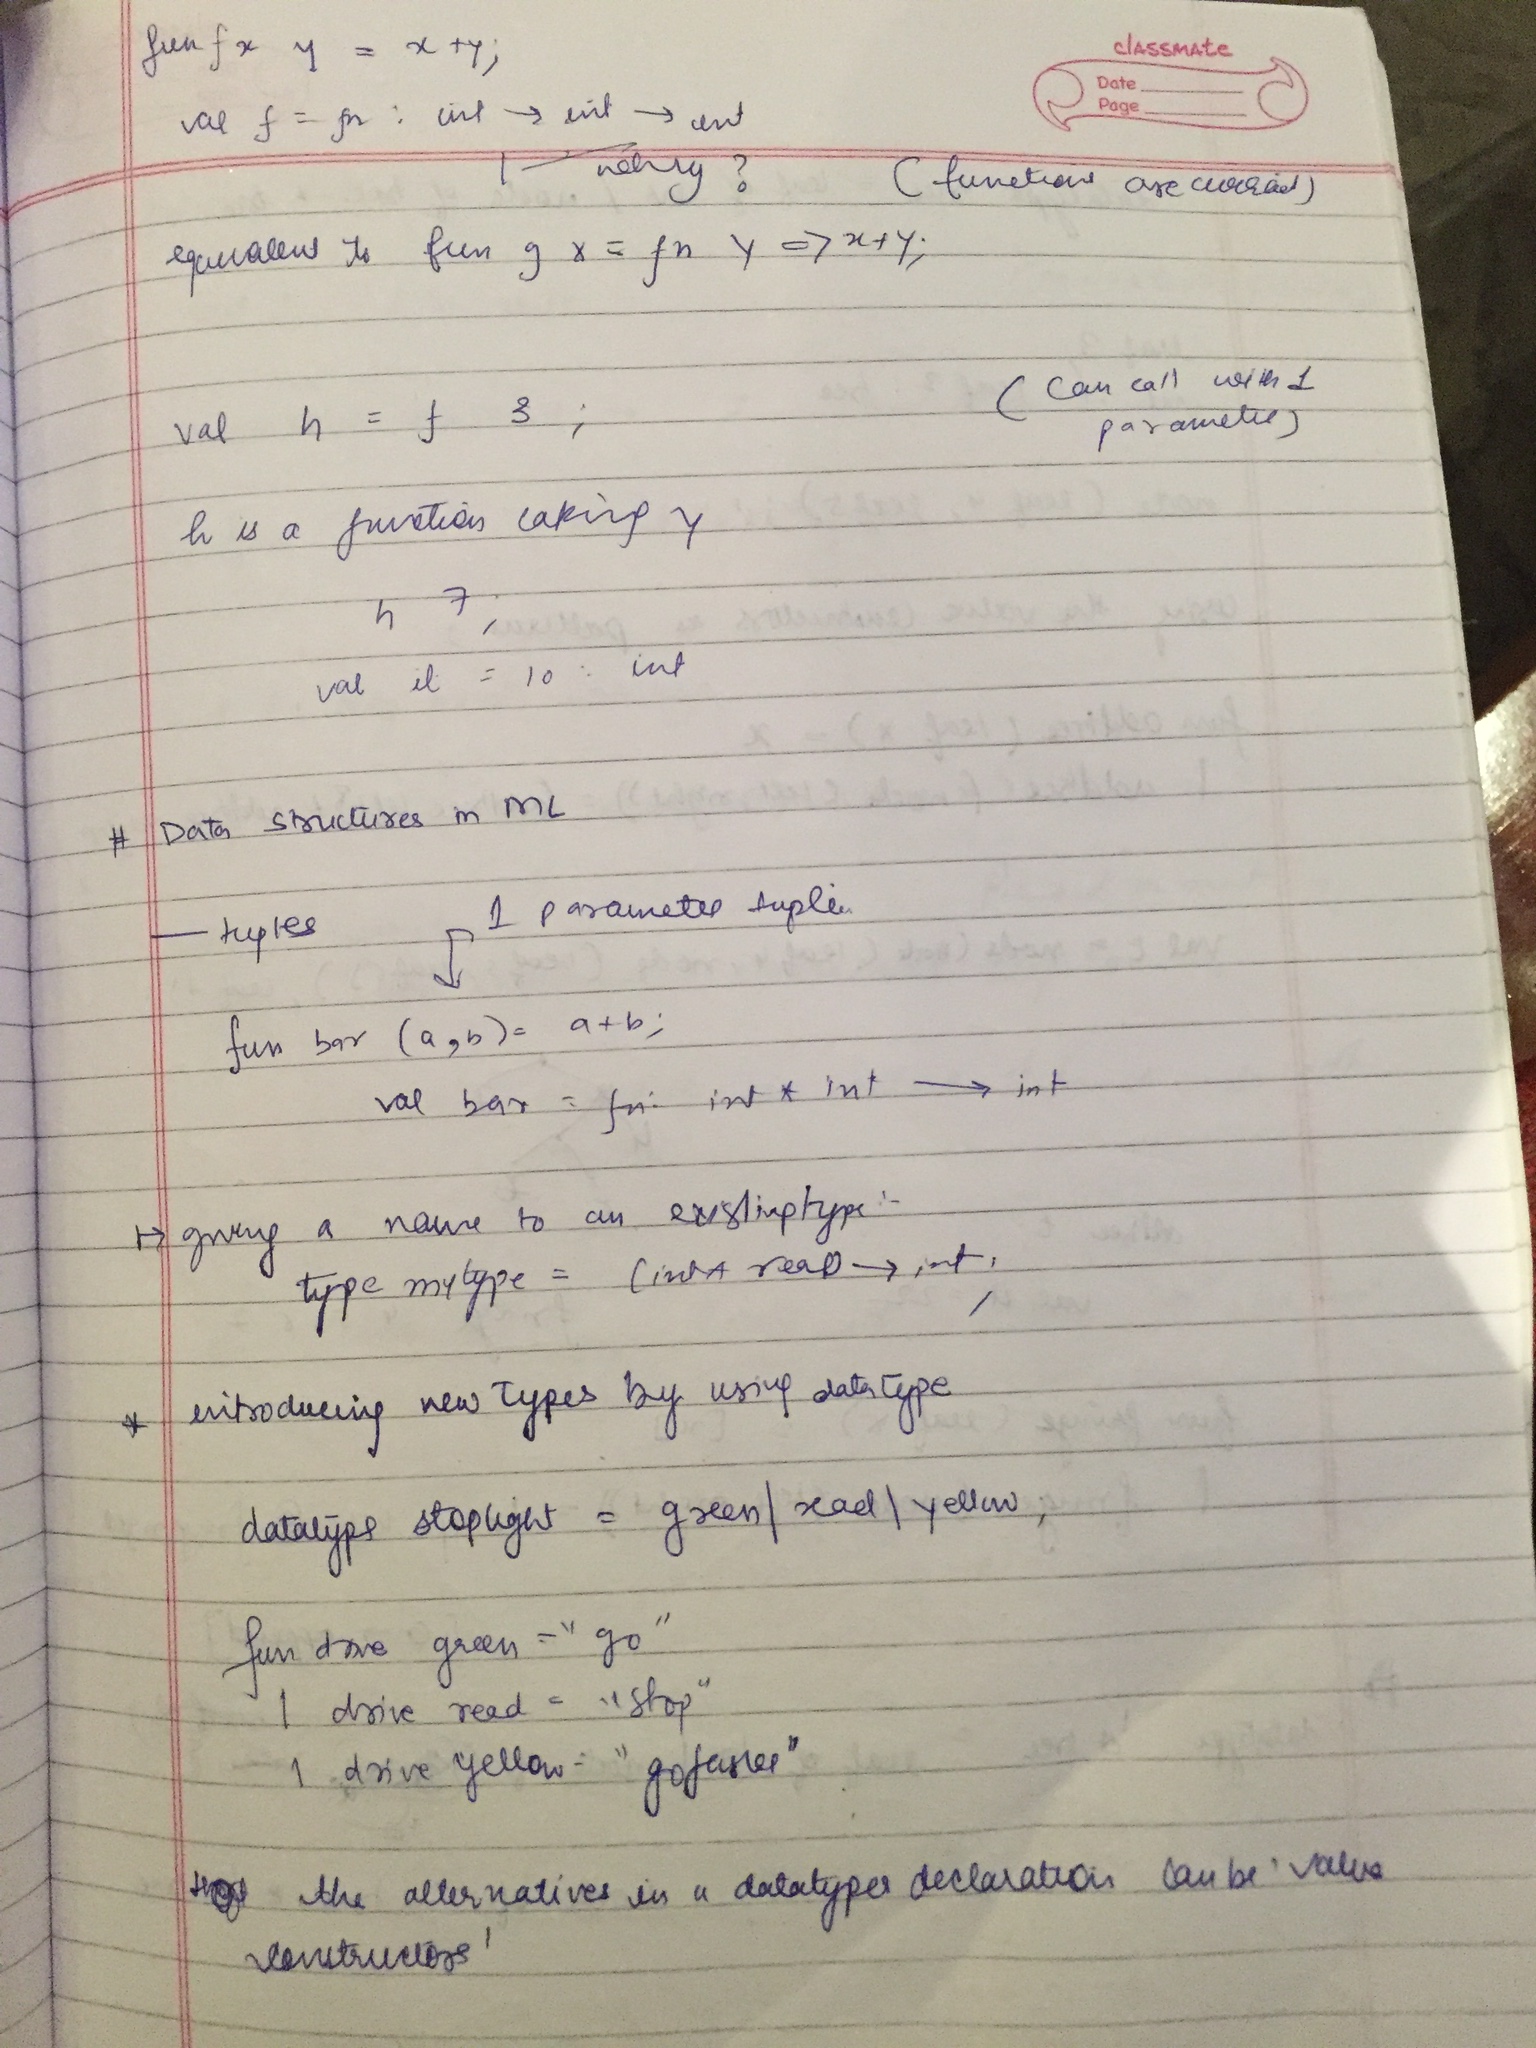 fun f x y = x+y;
classmate
Date
Page
val f = fn : int → int → int
why? (functions are curried)
equivalent to fun g x = fn y => x+y;
val h = f 3 ; (can call with 1
parameter)
h is a function taking y
h 7;
val it = 10 : int
# Data structures in ML
— tuples 1 parameter tuple
fun bar (a,b) = a+b;
val bar = fn: int * int → int
↦ giving a name to an existing type :-
type mytype = (int * real) → int;
* introducing new types by using datatype
datatype stoplight = green | read | yellow;
fun drive green = "go"
| drive read = "stop"
| drive yellow = "go faster"
the alternatives in a datatypes declaration can be 'value
constructors'